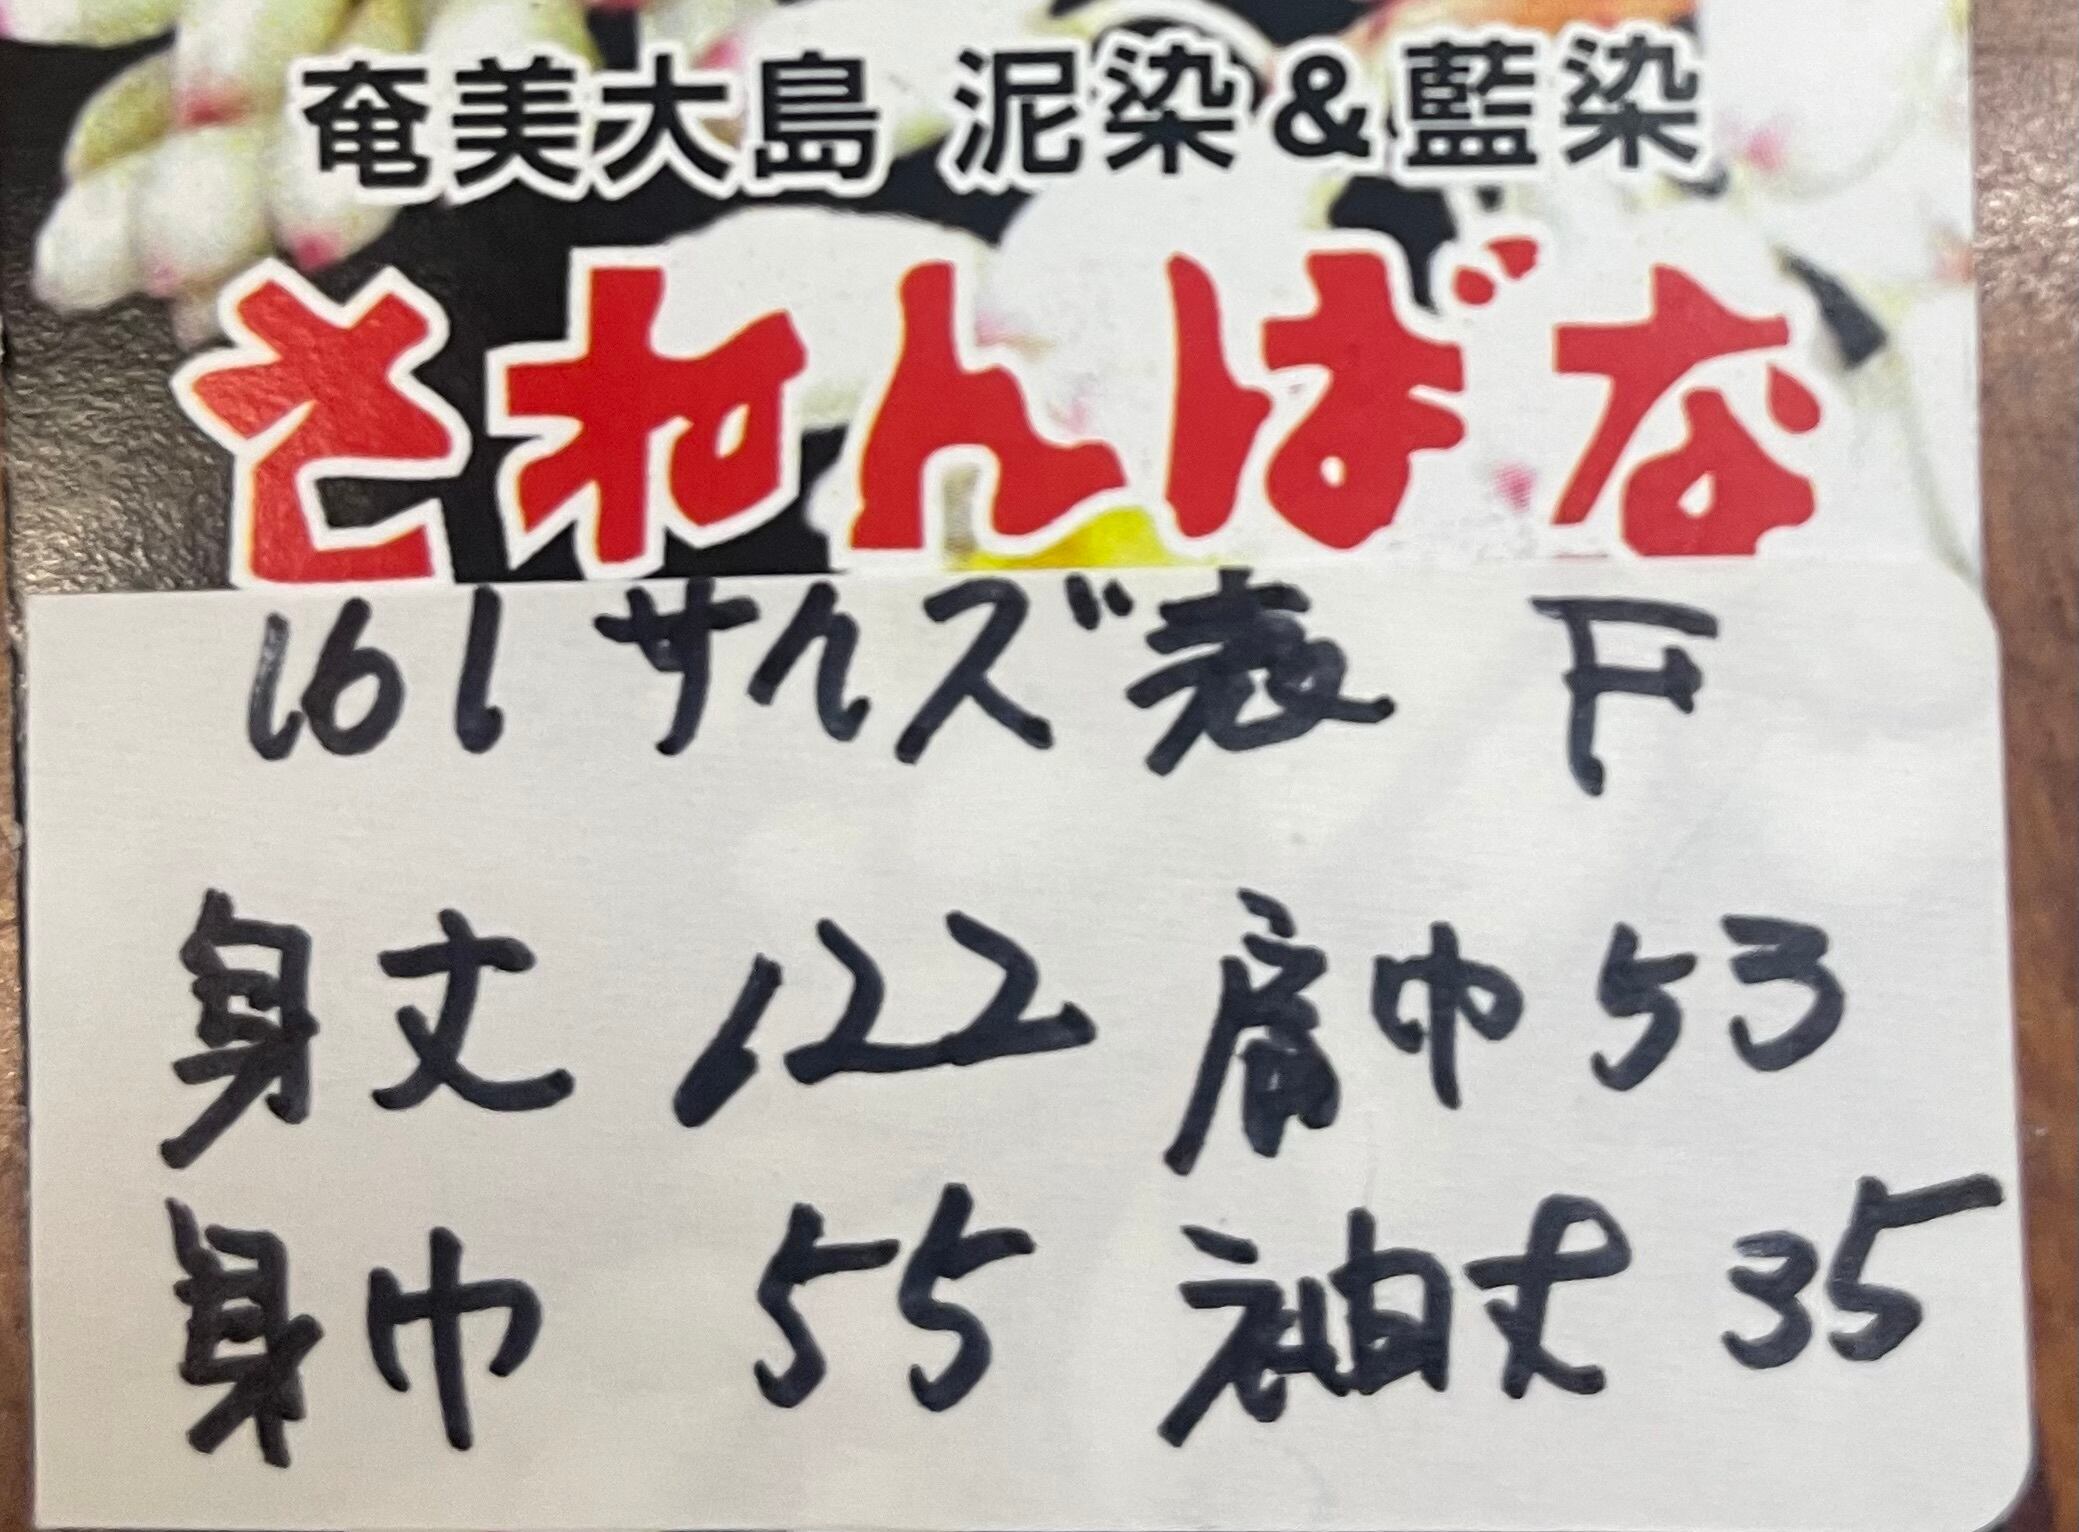 奄美大島 泥染&藍染
さねんばな
161 サイズ表 F
身丈 122 肩巾 53
身巾 55 袖丈 35